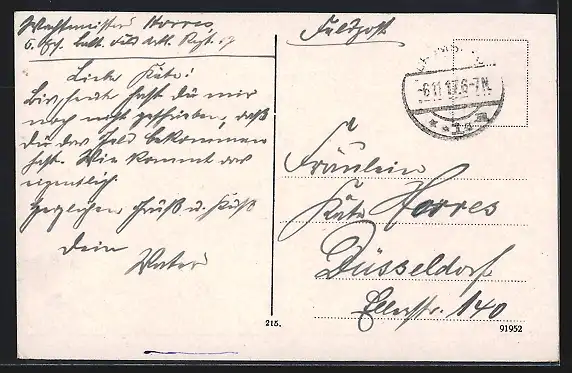 Wachtmeister Horres
Feldpost
Liebe Käte!
Bis heute hast du mir
noch nicht geschrieben, daß
du das Geld bekommen
hast. Wie kommt das
eigentlich.
Herzlichen Gruß u. Kuß
Dein
Vater
-6.11.17.6-7N.
Fräulein
Käte Horres
Düsseldorf
Ellerstr. 140
215.
91952